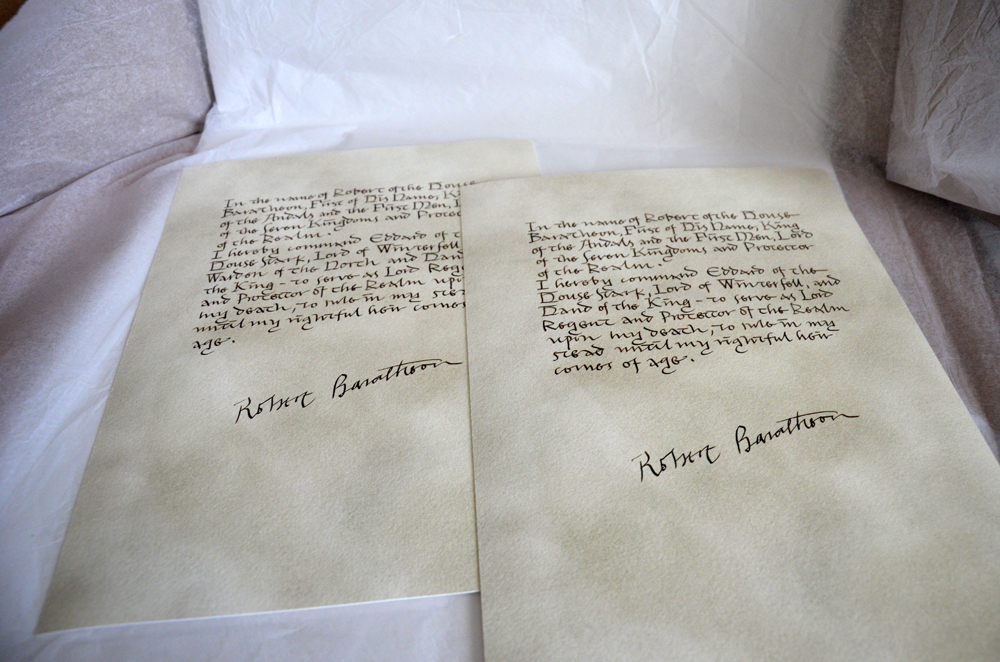 In the name of Robert of the House
Baratheon, First of His Name, Ki
of the Andals and the First Men, L
of the Seven Kingdoms and Protec
of the Realm.
I hereby command Eddard of t
House Stark, Lord of Winterfell
Warden of the North and Han
the King - to serve as Lord Reg
and Protector of the Realm up
my death, to rule in my ste
until my rightful heir comes
age.
Robert Baratheon
In the name of Robert of the House
Baratheon, First of His Name, King
of the Andals and the First Men, Lord
of the Seven Kingdoms and Protector
of the Realm.
I hereby command Eddard of the
House Stark, Lord of Winterfell, and
Hand of the King - to serve as Lord
Regent and Protector of the Realm
upon my death, to rule in my
stead until my rightful heir
comes of age.
Robert Baratheon